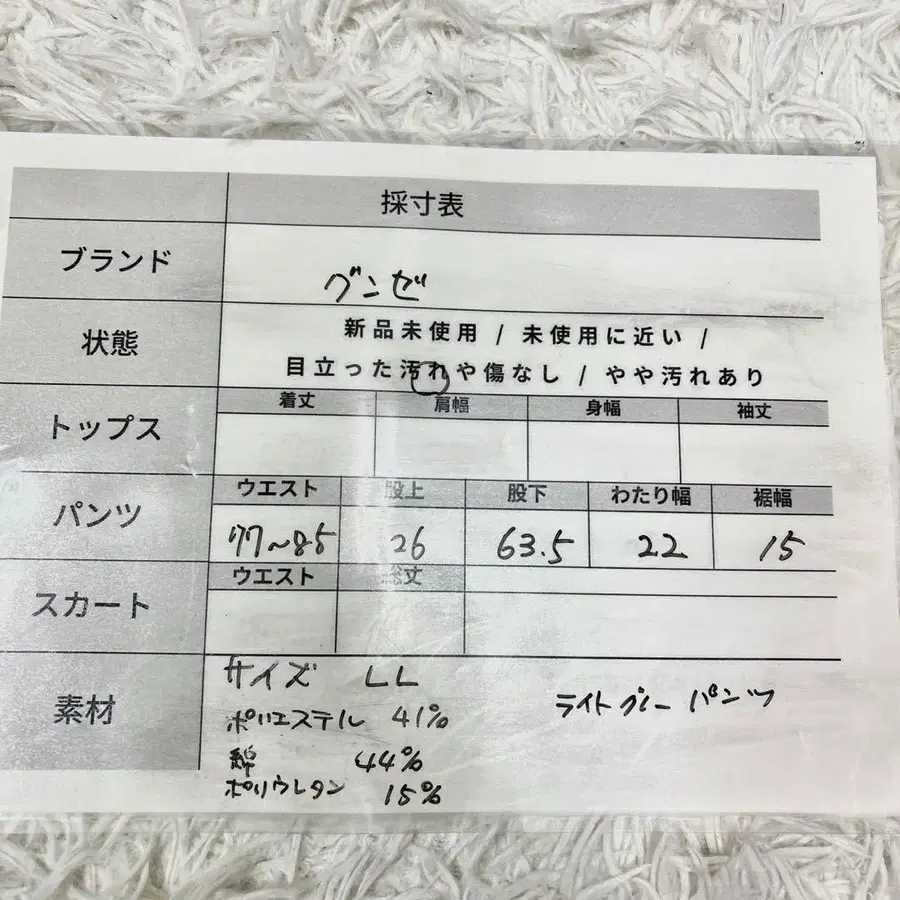 採寸表
ブランド
グンゼ
状態
新品未使用 / 未使用に近い /
目立った汚れや傷なし / やや汚れあり
トップス
着丈 肩幅 身幅 袖丈
パンツ
ウエスト 股上 股下 わたり幅 裾幅
77~85 26 63.5 22 15
スカート
ウエスト 総丈
素材
サイズ LL
ポリエステル 41%
綿 44%
ポリウレタン 15%
ライトグレーパンツ